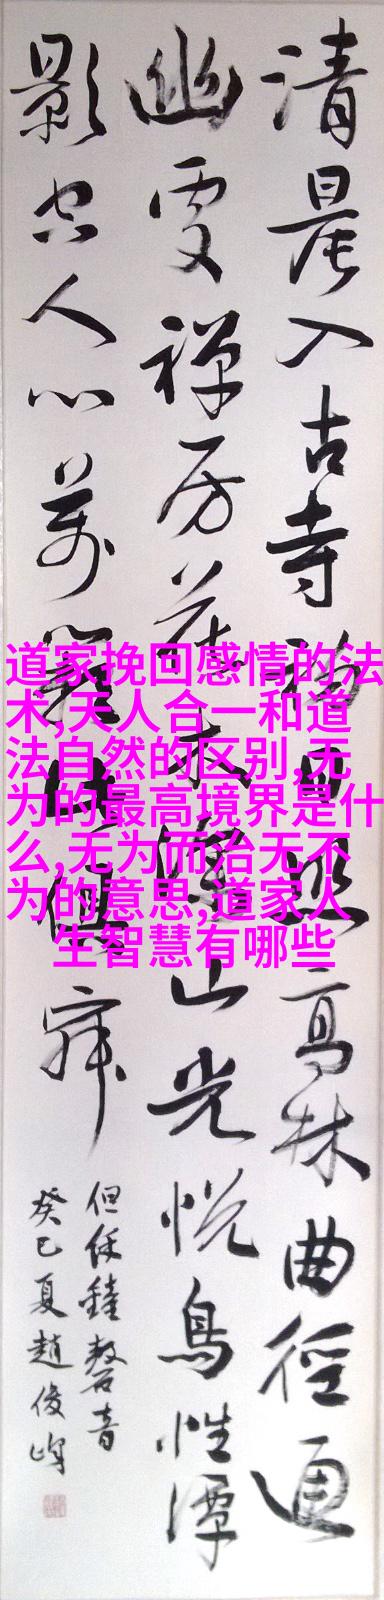 清晨入古寺初日照高林曲徑通
幽處禪房花木深山光悅鳥性潭
影空人心萬籟此俱寂
但餘鐘磬音
癸巳夏趙俊峰
道家挽回感情的法
术,天人合一和道
法自然的区别,无
为的最高境界是什
么,无为而治无不
为的意思,道家人
生智慧有哪些